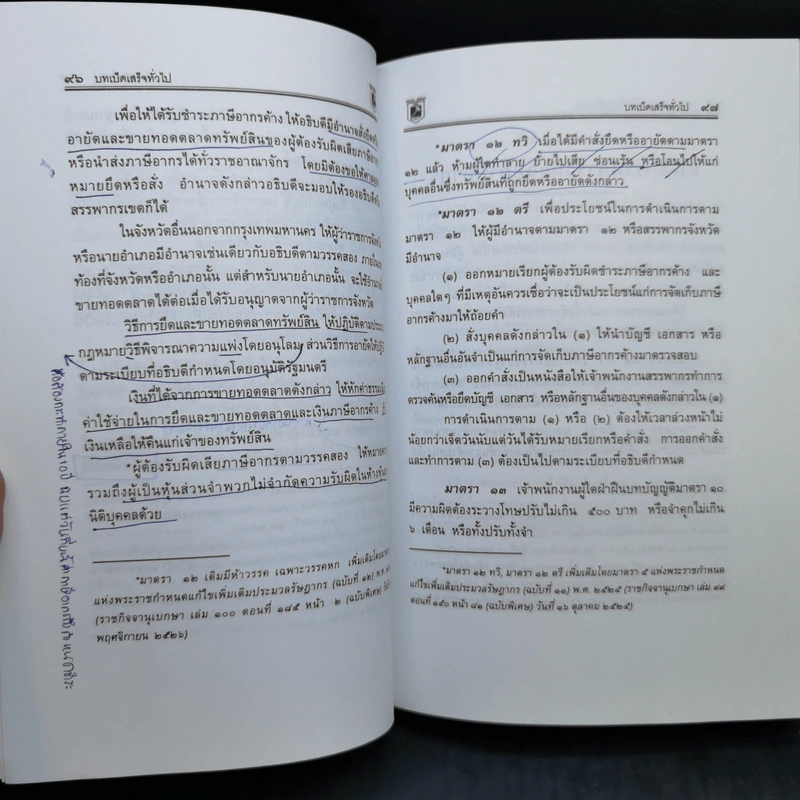 ๙๖ บทเบ็ดเสร็จทั่วไป
เพื่อให้ได้รับชำระภาษีอากรค้าง ให้อธิบดีมีอำนาจสั่งยึดหรือ
อายัดและขายทอดตลาดทรัพย์สินของผู้ต้องรับผิดเสียภาษีอากร
หรือนำส่งภาษีอากรได้ทั่วราชอาณาจักร โดยมิต้องขอให้ศาลออก
หมายยึดหรือสั่ง อำนาจดังกล่าวอธิบดีจะมอบให้รองอธิบดีหรือ
สรรพากรเขตก็ได้
ในจังหวัดอื่นนอกจากกรุงเทพมหานคร ให้ผู้ว่าราชการจังหวัด
หรือนายอำเภอมีอำนาจเช่นเดียวกับอธิบดีตามวรรคสอง ภายใน
ท้องที่จังหวัดหรืออำเภอนั้น แต่สำหรับนายอำเภอนั้น จะใช้อำนาจ
ขายทอดตลาดได้ต่อเมื่อได้รับอนุญาตจากผู้ว่าราชการจังหวัด
วิธีการยึดและขายทอดตลาดทรัพย์สิน ให้ปฏิบัติตามประมวล
กฎหมายวิธีพิจารณาความแพ่งโดยอนุโลม ส่วนวิธีการอายัดให้ปฏิบัติ
ตามระเบียบที่อธิบดีกำหนดโดยอนุมัติรัฐมนตรี
เงินที่ได้จากการขายทอดตลาดดังกล่าว ให้หักค่าธรรมเนียม
ค่าใช้จ่ายในการยึดและขายทอดตลาดและเงินภาษีอากรค้าง ถ้า
เงินเหลือให้คืนแก่เจ้าของทรัพย์สิน
*ผู้ต้องรับผิดเสียภาษีอากรตามวรรคสอง ให้หมายความ
รวมถึงผู้เป็นหุ้นส่วนจำพวกไม่จำกัดความรับผิดในห้างหุ้นส่วน
นิติบุคคลด้วย
*มาตรา ๑๒ เดิมมีห้าวรรค เฉพาะวรรคหก เพิ่มเติมโดยมาตรา
แห่งพระราชกำหนดแก้ไขเพิ่มเติมประมวลรัษฎากร (ฉบับที่ ๑๒) พ.ศ.
(ราชกิจจานุเบกษา เล่ม ๑๐๐ ตอนที่ ๑๘๕ หน้า ๒ (ฉบับพิเศษ)
พฤศจิกายน ๒๕๒๖)
บทเบ็ดเสร็จทั่วไป ๙๗
*มาตรา ๑๒ ทวิ เมื่อได้มีคำสั่งยึดหรืออายัดตามมาตรา
๑๒ แล้ว ห้ามผู้ใดทำลาย ย้ายไปเสีย ซ่อนเร้น หรือโอนไปให้แก่
บุคคลอื่นซึ่งทรัพย์สินที่ถูกยึดหรืออายัดดังกล่าว
*มาตรา ๑๒ ตรี เพื่อประโยชน์ในการดำเนินการตาม
มาตรา ๑๒ ให้ผู้มีอำนาจตามมาตรา ๑๒ หรือสรรพากรจังหวัด
มีอำนาจ
(๑) ออกหมายเรียกผู้ต้องรับผิดชำระภาษีอากรค้าง และ
บุคคลใดๆ ที่มีเหตุอันควรเชื่อว่าจะเป็นประโยชน์แก่การจัดเก็บภาษี
อากรค้างมาให้ถ้อยคำ
(๒) สั่งบุคคลดังกล่าวใน (๑) ให้นำบัญชี เอกสาร หรือ
หลักฐานอื่นอันจำเป็นแก่การจัดเก็บภาษีอากรค้างมาตรวจสอบ
(๓) ออกคำสั่งเป็นหนังสือให้เจ้าพนักงานสรรพากรทำการ
ตรวจค้นหรือยึดบัญชี เอกสาร หรือหลักฐานอื่นของบุคคลดังกล่าวใน (๑)
การดำเนินการตาม (๑) หรือ (๒) ต้องให้เวลาล่วงหน้าไม่
น้อยกว่าเจ็ดวันนับแต่วันได้รับหมายเรียกหรือคำสั่ง การออกคำสั่ง
และทำการตาม (๓) ต้องเป็นไปตามระเบียบที่อธิบดีกำหนด
มาตรา ๑๓ เจ้าพนักงานผู้ใดฝ่าฝืนบทบัญญัติมาตรา ๑๐
มีความผิดต้องระวางโทษปรับไม่เกิน ๕๐๐ บาท หรือจำคุกไม่เกิน
๖ เดือน หรือทั้งปรับทั้งจำ
*มาตรา ๑๒ ทวิ, มาตรา ๑๒ ตรี เพิ่มเติมโดยมาตรา ๕ แห่งพระราชกำหนด
แก้ไขเพิ่มเติมประมวลรัษฎากร (ฉบับที่ ๑๑) พ.ศ. ๒๕๒๕ (ราชกิจจานุเบกษา เล่ม ๙๙
ตอนที่ ๑๕๐ หน้า ๘๑ (ฉบับพิเศษ) วันที่ ๑๖ ตุลาคม ๒๕๒๕)